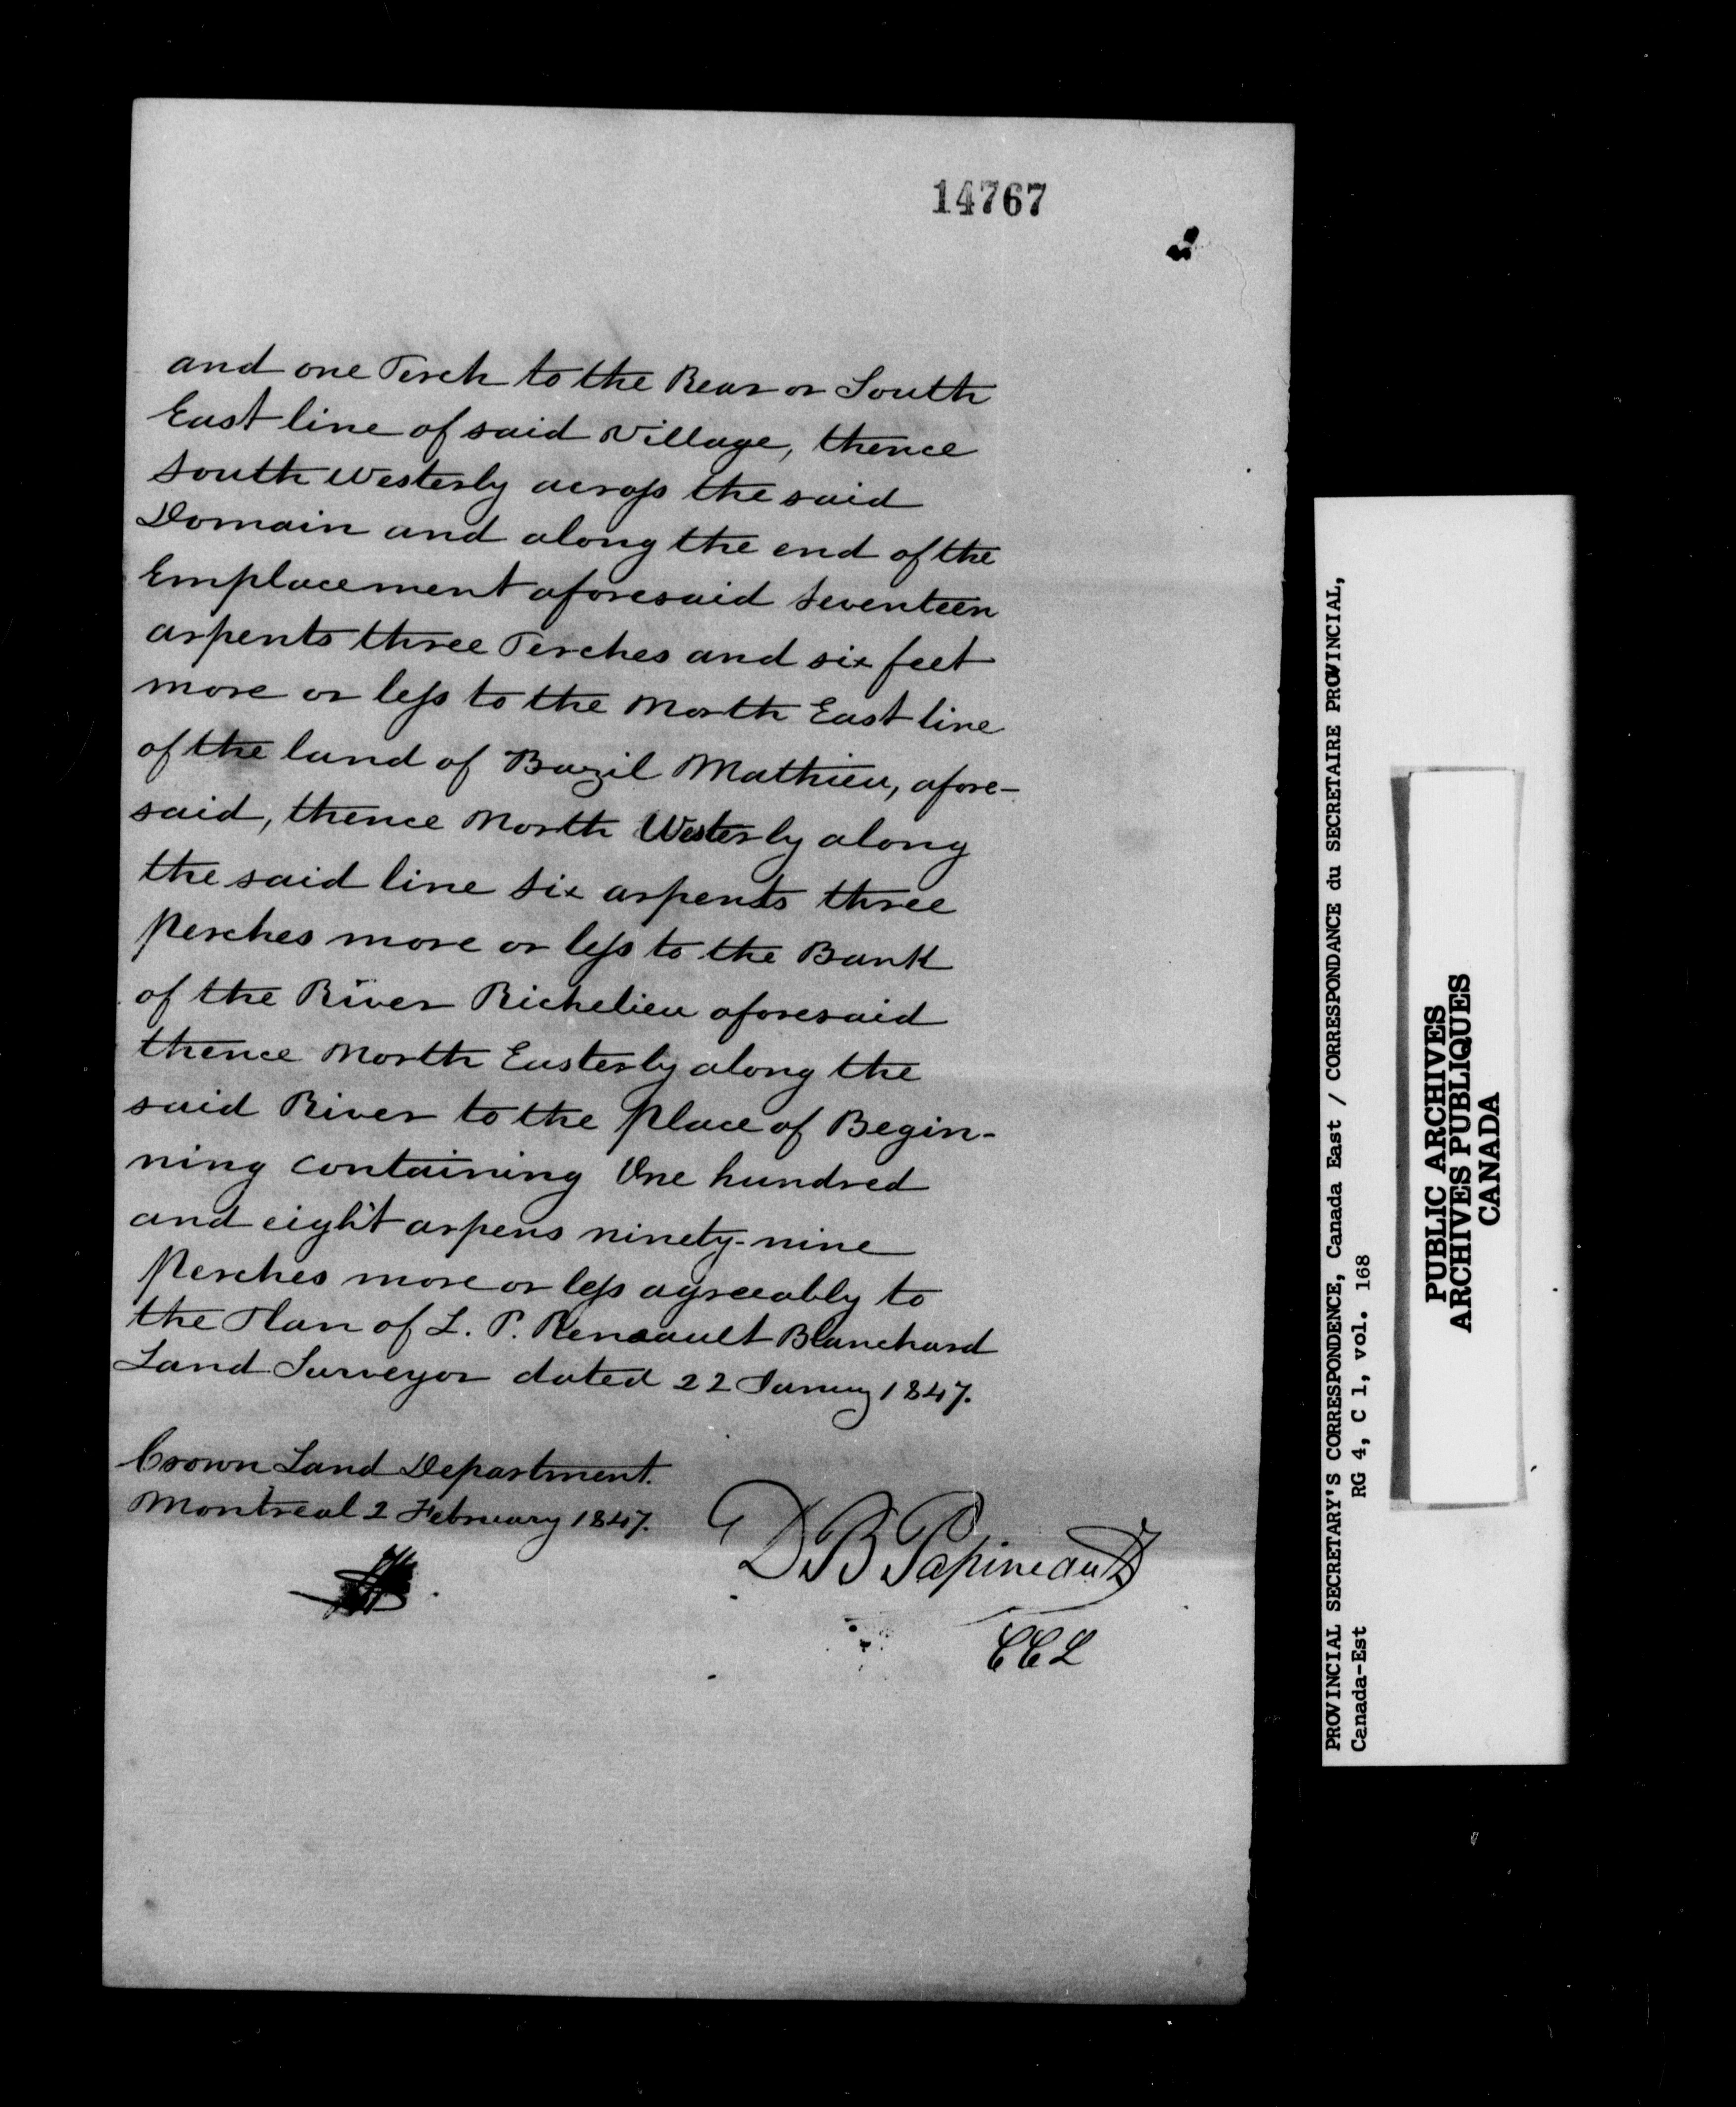 14767
and one Perch to the Rear or South
East line of said Village, thence
South Westerly across the said
Domain and along the end of the
Emplacement aforesaid Seventeen
arpents three Perches and six feet
more or less to the North East line
of the land of Bazil Mathieu, afore-
said, thence North Westerly along
the said line six arpents three
Perches more or less to the Bank
of the River Richelieu aforesaid
thence North Easterly along the
said River to the Place of Begin-
ning containing One hundred
and eight arpens ninety-nine
Perches more or less agreeably to
the Plan of L. P. Renaault Blanchard
Land Surveyor dated 22 January 1847.
Crown Land Department.
Montreal 2 February 1847.
D. B. Papineau
CCL
PROVINCIAL SECRETARY'S CORRESPONDENCE, Canada East / CORRESPONDANCE du SECRETAIRE PROVINCIAL,
Canada-Est RG 4, C 1, vol. 168
PUBLIC ARCHIVES
ARCHIVES PUBLIQUES
CANADA